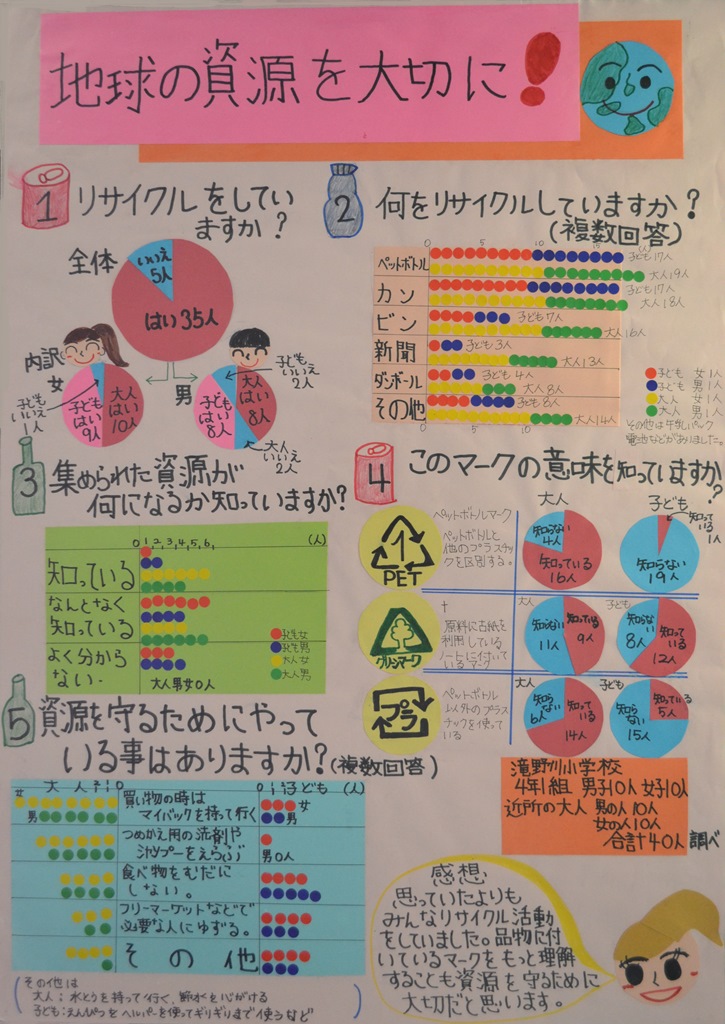 地球の資源を大切に!
1 リサイクルをしてい
ますか?
全体
いいえ
5人
はい35人
内訳
女
男
子ども
いいえ
1人
子ども
はい
9人
大人
はい
10人
子ども
いいえ
2人
子ども
はい
8人
大人
はい
8人
大人
いいえ
2人
2 何をリサイクルしていますか?
(複数回答)
0 5 10 (人)
ペットボトル 子ども17人
大人19人
カン 子ども17人
大人18人
ビン 子ども7人
大人16人
新聞 子ども3人
大人13人
ダンボール 子ども4人
大人8人
その他 子ども8人
大人14人
0 5 10
子ども 女1人
子ども 男1人
大人 女1人
大人 男1人
その他は牛乳パック
電池などがありました。
3 集められた資源が
何になるか知っていますか?
0 1, 2, 3, 4, 5, 6, (人)
知っている
なんとなく
知っている
よく分から
ない.
大人男女0人
子ども女
子ども男
大人女
大人男
4 このマークの意味を知っていますか
?
大人
子ども
1
PET
ペットボトルマーク
ペットボトルと
他のプラスチック
を区別する。
知らない
4人
知っている
16人
知って
いる
1人
知らない
19人
グリーンマーク
原料に古紙を
利用している
ノートに付いて
いるマーク
大人
知らない
11人
知っている
9人
子ども
知らない
8人
知って
いる
12人
プラ
ペットボトル
以外のプラス
チックを使って
いる
大人
知ら
ない
6人
知って
いる
14人
子ども
知らない
15人
知っている
5人
5 資源を守るためにやって
いる事はありますか?(複数回答)
大人
0
0
子ども (人)
女
男
買い物の時は
マイバックを持って行く
女
男
つめかえ用の洗剤や
シャンプーをえらぶ
男0人
食べ物をむだに
しない。
フリーマーケットなどで
必要な人にゆずる。
その他
その他は
大人:水とうを持って行く、節水を心がける
子ども:えんぴつをヘルパーを使ってギリギリまで使うなど
滝野川小学校
4年1組 男子10人 女子10人
近所の大人 男の人10人
女の人10人
合計40人調べ
感想
思っていたよりも
みんなリサイクル活動
をしていました。品物に付
いているマークをもっと理解
することも資源を守るために
大切だと思います。